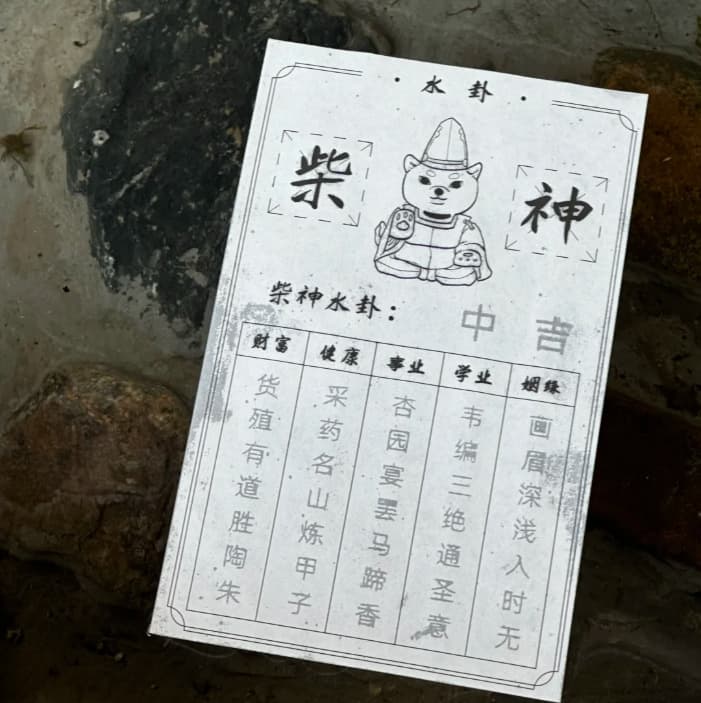 · 水 卦 ·
柴 神
柴神水卦： 中 吉
财富 健康 事业 学业 姻缘
货殖有道胜陶朱
采药名山炼甲子
杏园宴罢马蹄香
韦编三绝通圣意
画眉深浅入时无